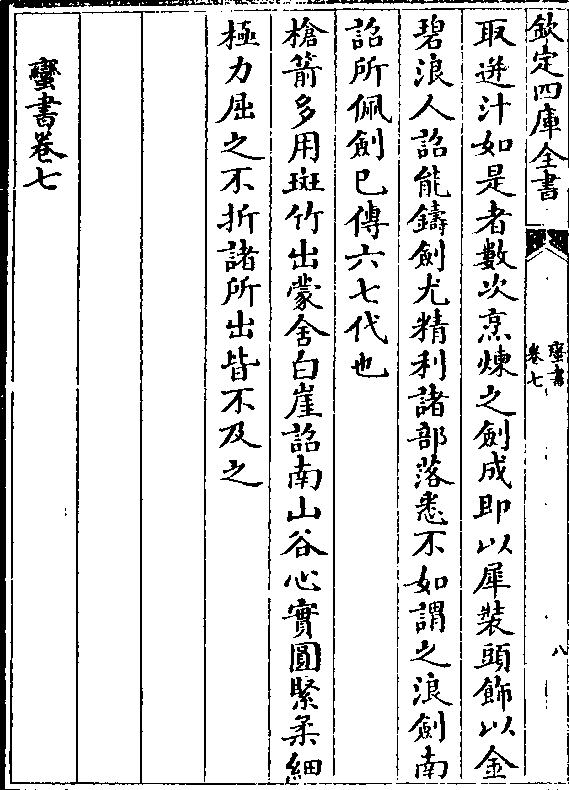 欽定四庫全書
蠻書
卷七
八
取迸汁如是者數次烹煉之劍成即以犀裝頭飾以金
碧浪人詔能鑄劍尤精利諸部落悉不如謂之浪劍南
詔所佩劍已傳六七代也
槍箭多用斑竹出蒙舍白崖詔南山谷心實圓緊柔細
極力屈之不折諸所出皆不及之
蠻書卷七